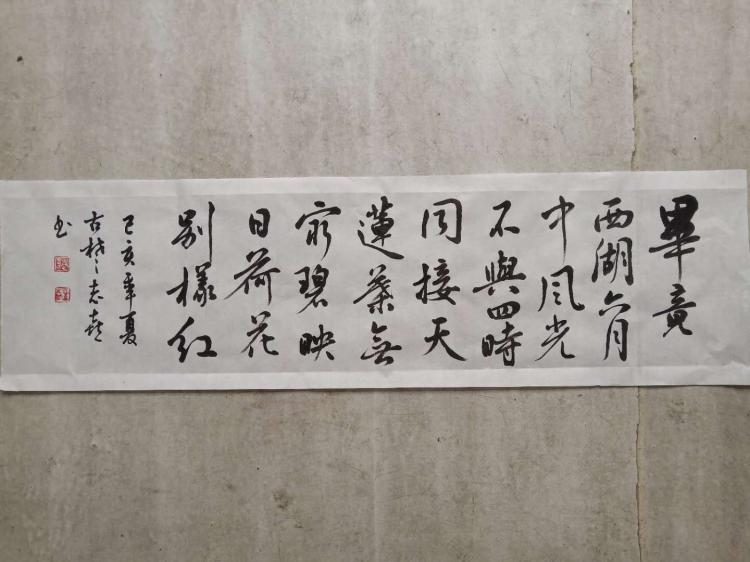 畢竟
西湖六月
中風光
不與四時
同接天
蓮葉無
窮碧映
日荷花
別樣紅
己亥年夏
志
书